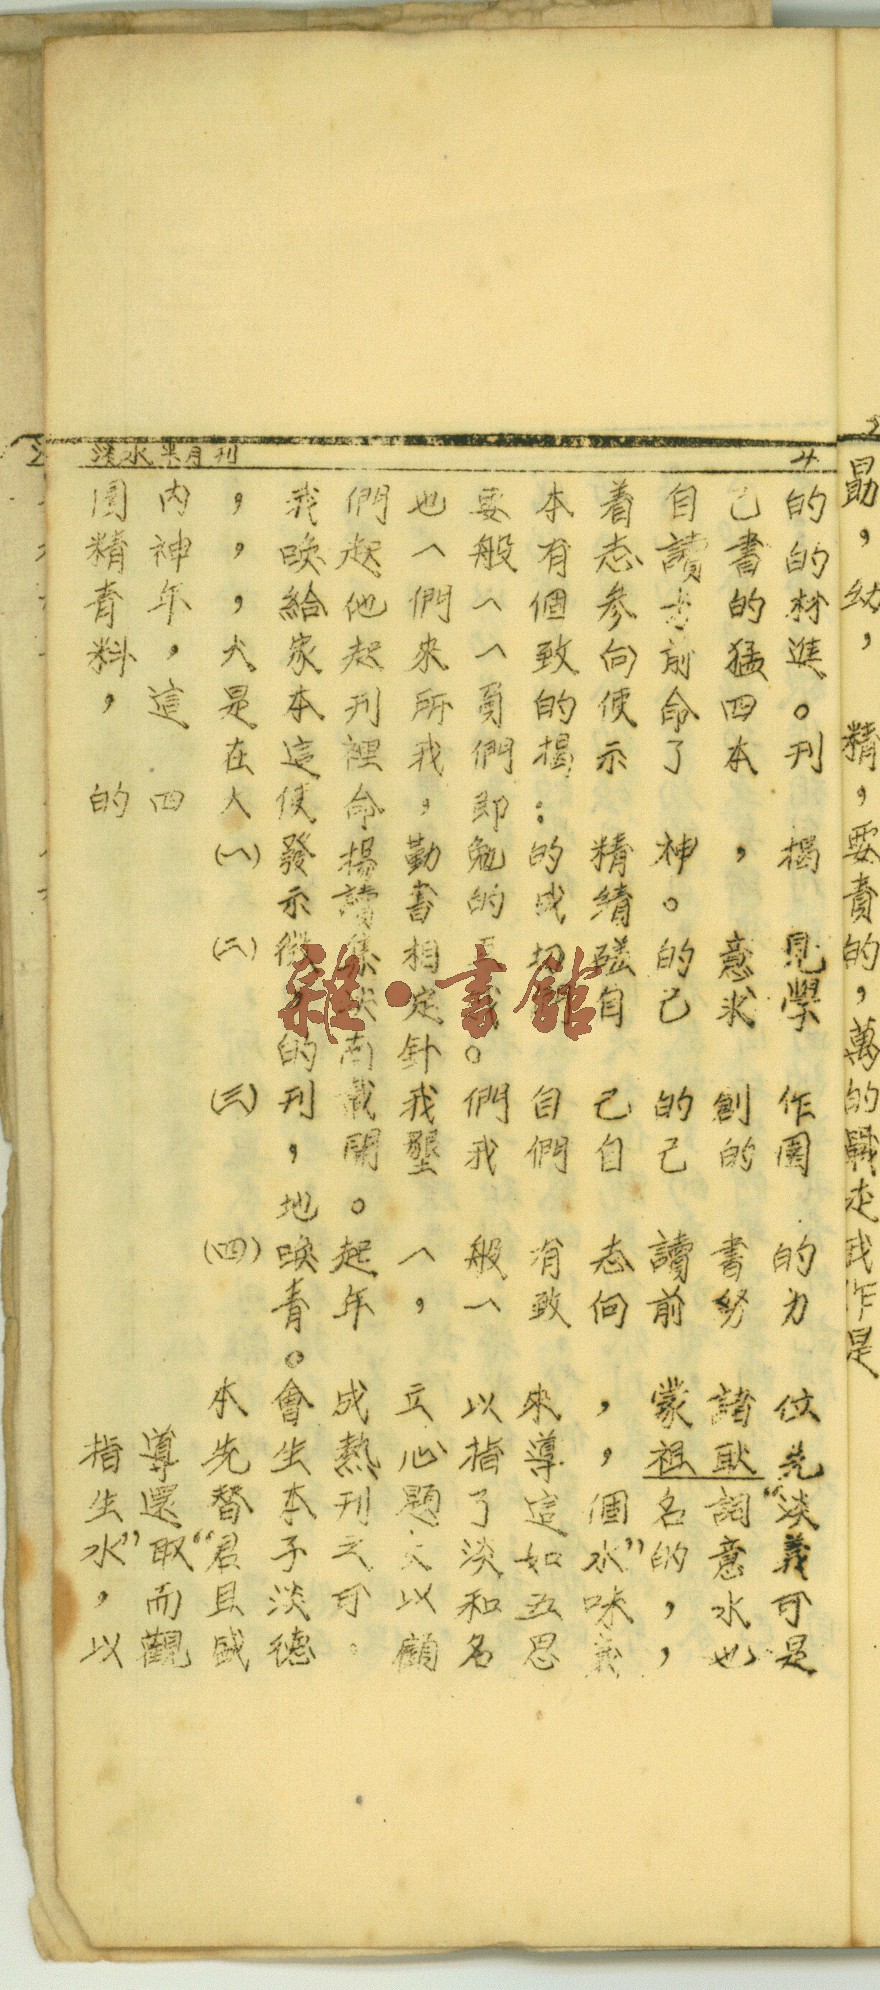 淡水半月刊 4
圍內，我們也要本着自己的
精神，喚起一般有志讀書的
青年，給他們一個參考的材
料，大家起來一致向前猛進。
，這是本刊所負的使命。四
在這裡我們揭示了本刊
的四大使命，即：
(一)發揚勤勉的精神，揭
示讀書的成績。
(二)徵集相互切磋的意見
，定我們自己求學
的南針。
(三)刊載我們自己的創作
，開墾我們自己的園
地。
(四)喚起一般有志讀書的
青年，一致向前努力
。
本會成立以來，蒙諸位
指導先生熱心指導，祖耿先
生還替本刊題了這個名詞“淡
水”取“君子之交淡如水”的意義
，而且淡可以和五味，水也可
以觀盛德。顧名思義，也是
雜·書館